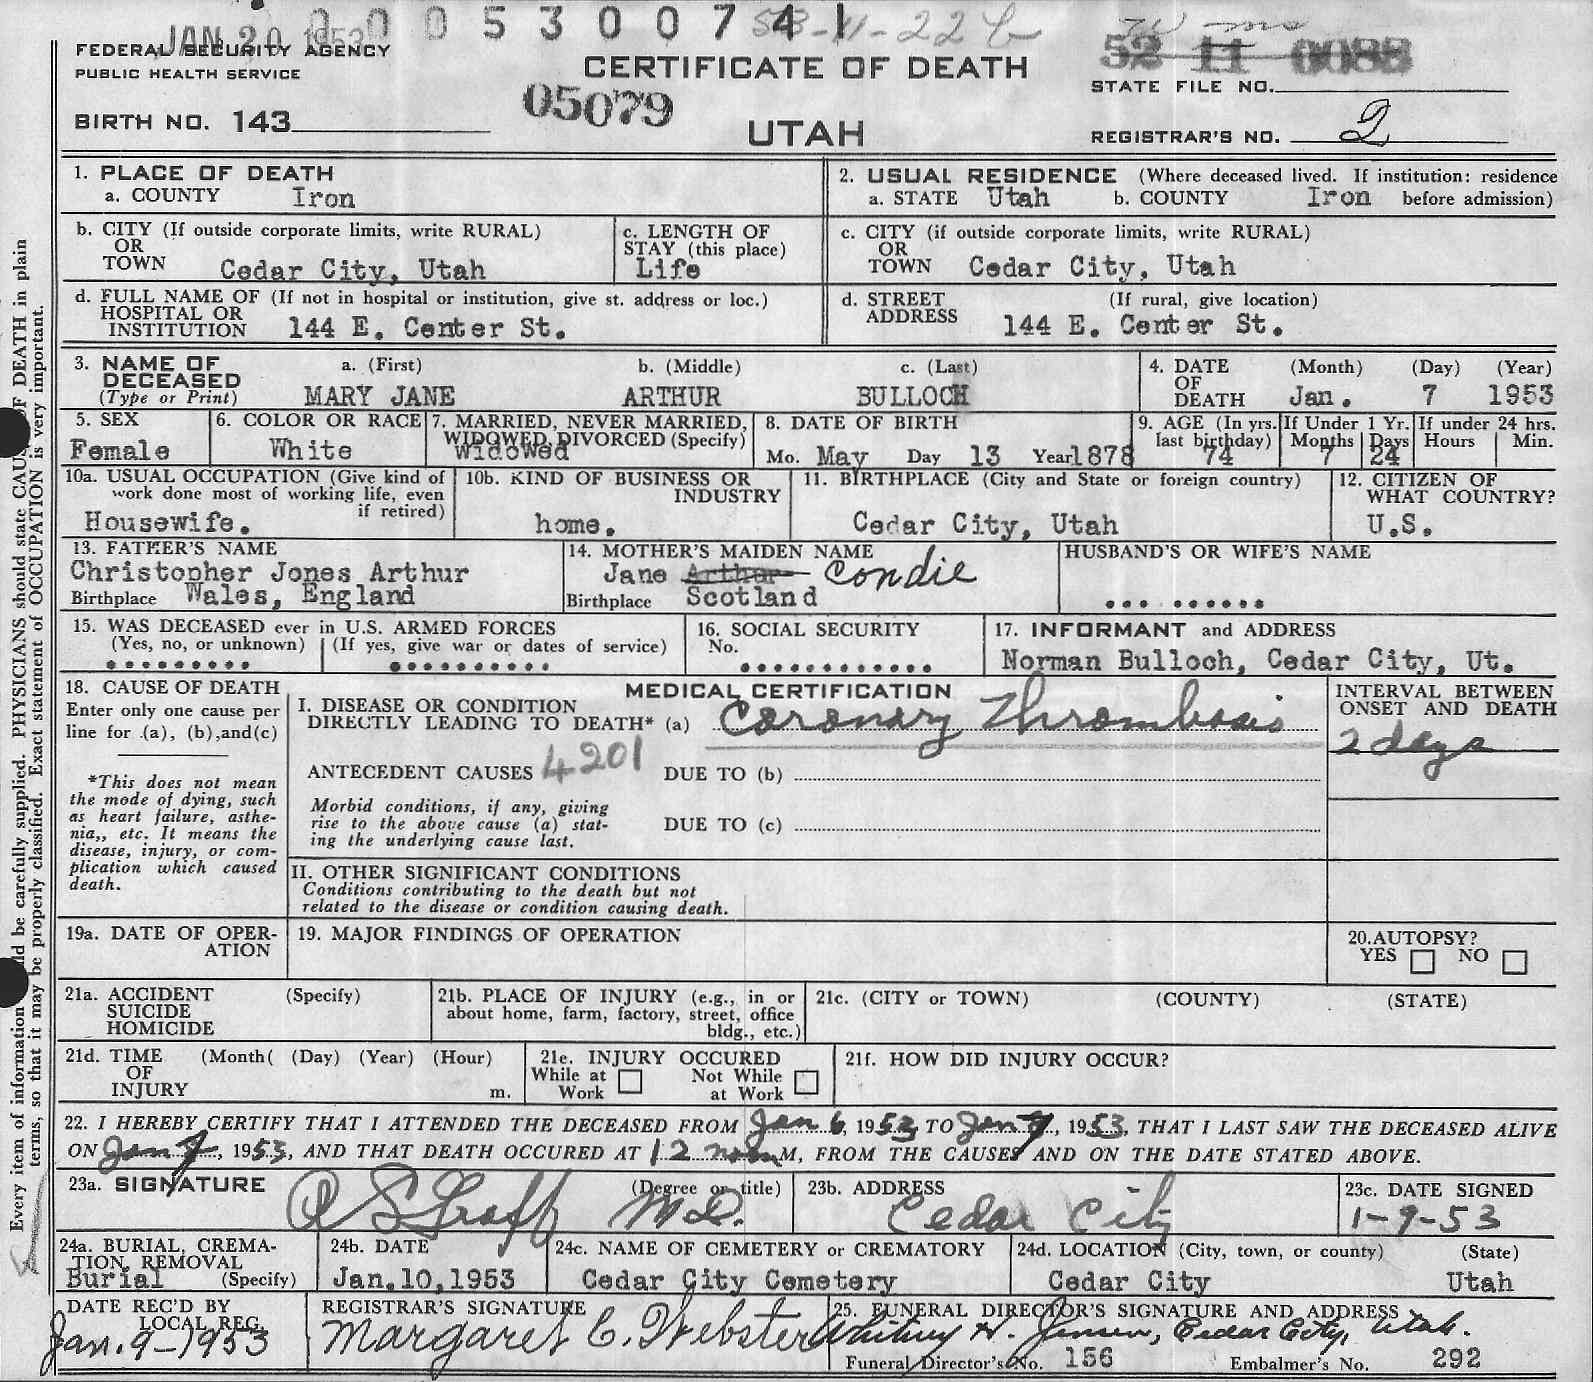 00053007 4 1
JAN 20 1953
53-11-22 b
FEDERAL SECURITY AGENCY
PUBLIC HEALTH SERVICE
CERTIFICATE OF DEATH
52 11 0088
STATE FILE NO.
BIRTH NO. 143
05079
UTAH
REGISTRAR'S NO. 2
1. PLACE OF DEATH
a. COUNTY Iron
2. USUAL RESIDENCE (Where deceased lived. If institution: residence
a. STATE Utah b. COUNTY Iron before admission)
b. CITY (If outside corporate limits, write RURAL)
OR
TOWN Cedar City, Utah
c. LENGTH OF
STAY (this place)
Life
c. CITY (if outside corporate limits, write RURAL)
OR
TOWN Cedar City, Utah
d. FULL NAME OF (If not in hospital or institution, give st. address or loc.)
HOSPITAL OR
INSTITUTION 144 E. Center St.
d. STREET (If rural, give location)
ADDRESS 144 E. Center St.
3. NAME OF DECEASED
(Type or Print)
a. (First) b. (Middle) c. (Last)
MARY JANE ARTHUR BULLOCH
4. DATE OF DEATH
(Month) (Day) (Year)
Jan. 7 1953
5. SEX
Female
6. COLOR OR RACE
White
7. MARRIED, NEVER MARRIED,
WIDOWED, DIVORCED (Specify)
Widowed
8. DATE OF BIRTH
Mo. May Day 13 Year 1878
9. AGE (In yrs. last birthday)
74
If Under 1 Yr.
Months Days
7 24
If under 24 hrs.
Hours Min.
10a. USUAL OCCUPATION (Give kind of
work done most of working life, even
if retired)
Housewife.
10b. KIND OF BUSINESS OR
INDUSTRY
home.
11. BIRTHPLACE (City and State or foreign country)
Cedar City, Utah
12. CITIZEN OF
WHAT COUNTRY?
U.S.
13. FATHER'S NAME
Christopher Jones Arthur
Birthplace Wales, England
14. MOTHER'S MAIDEN NAME
Jane Arthur Condie
Birthplace Scotland
HUSBAND'S OR WIFE'S NAME
... ......
15. WAS DECEASED ever in U.S. ARMED FORCES
(Yes, no, or unknown) (If yes, give war or dates of service)
......... ..........
16. SOCIAL SECURITY
No.
............
17. INFORMANT and ADDRESS
Norman Bulloch, Cedar City, Ut.
18. CAUSE OF DEATH
Enter only one cause per
line for (a), (b), and(c)
*This does not mean
the mode of dying, such
as heart failure, asthe-
nia,, etc. It means the
disease, injury, or com-
plication which caused
death.
MEDICAL CERTIFICATION
I. DISEASE OR CONDITION
DIRECTLY LEADING TO DEATH* (a) Coronary Thrombosis
INTERVAL BETWEEN
ONSET AND DEATH
2 days
ANTECEDENT CAUSES 4201 DUE TO (b)
Morbid conditions, if any, giving
rise to the above cause (a) stat-
ing the underlying cause last.
DUE TO (c)
II. OTHER SIGNIFICANT CONDITIONS
Conditions contributing to the death but not
related to the disease or condition causing death.
19a. DATE OF OPER-
ATION
19. MAJOR FINDINGS OF OPERATION
20. AUTOPSY?
YES NO
21a. ACCIDENT (Specify)
SUICIDE
HOMICIDE
21b. PLACE OF INJURY (e.g., in or
about home, farm, factory, street, office
bldg., etc.)
21c. (CITY or TOWN) (COUNTY) (STATE)
21d. TIME (Month( (Day) (Year) (Hour)
OF
INJURY m.
21e. INJURY OCCURED
While at Work Not While at Work
21f. HOW DID INJURY OCCUR?
22. I HEREBY CERTIFY THAT I ATTENDED THE DECEASED FROM Jan 6, 1953 TO Jan 7, 1953, THAT I LAST SAW THE DECEASED ALIVE
ON Jan 7, 1953, AND THAT DEATH OCCURED AT 12 noon M, FROM THE CAUSES AND ON THE DATE STATED ABOVE.
23a. SIGNATURE (Degree or title)
M.D.
23b. ADDRESS
Cedar City
23c. DATE SIGNED
1-9-53
24a. BURIAL, CREMA-
TION, REMOVAL
Burial (Specify)
24b. DATE
Jan.10,1953
24c. NAME OF CEMETERY or CREMATORY
Cedar City Cemetery
24d. LOCATION (City, town, or county) (State)
Cedar City Utah
DATE REC'D BY
LOCAL REG.
Jan. 9-1953
REGISTRAR'S SIGNATURE
Margaret C. Webster
25. FUNERAL DIRECTOR'S SIGNATURE AND ADDRESS
Whitney H. Jensen, Cedar City, Utah.
Funeral Director's No. 156 Embalmer's No. 292
terms, so that it may be properly classified. Exact statement of OCCUPATION is very important.